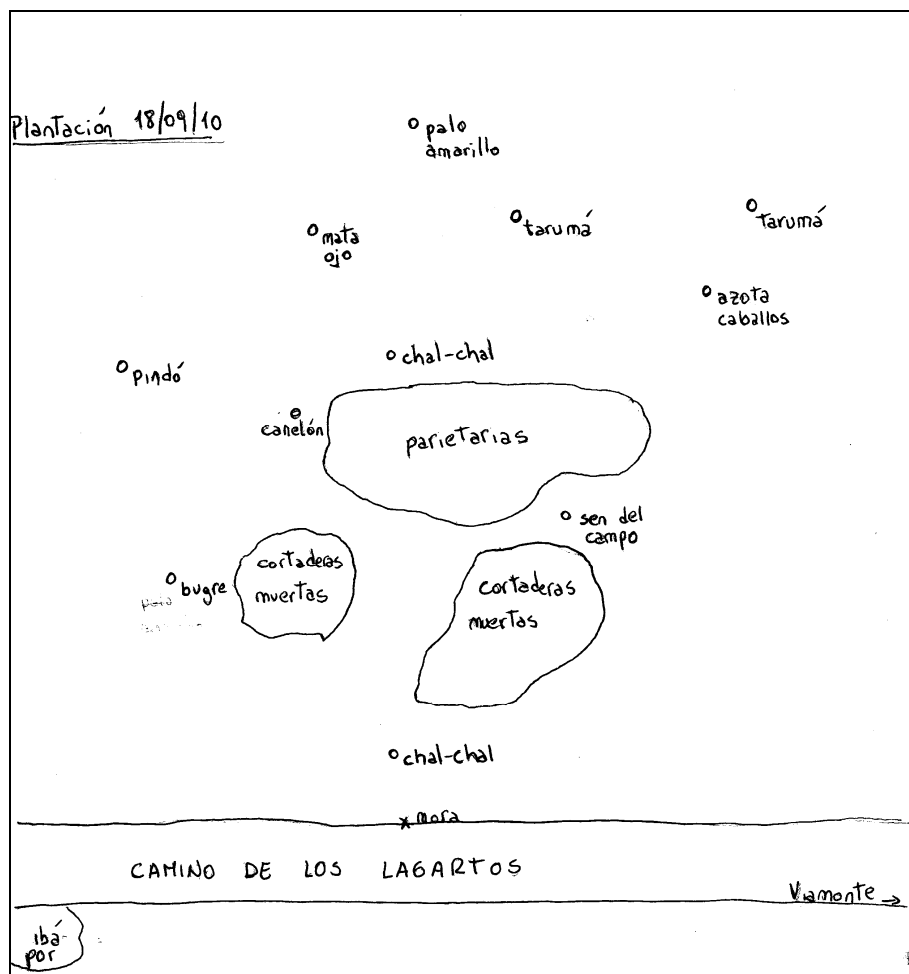 Plantación 18/09/10
palo
amarillo
mata
ojo
tarumá
tarumá
azota
caballos
chal-chal
pindó
canelón
parietarias
sen del
campo
cortaderas
muertas
bugre
cortaderas
muertas
chal-chal
mora
CAMINO DE LOS LAGARTOS
Viamonte →
ibá-
por